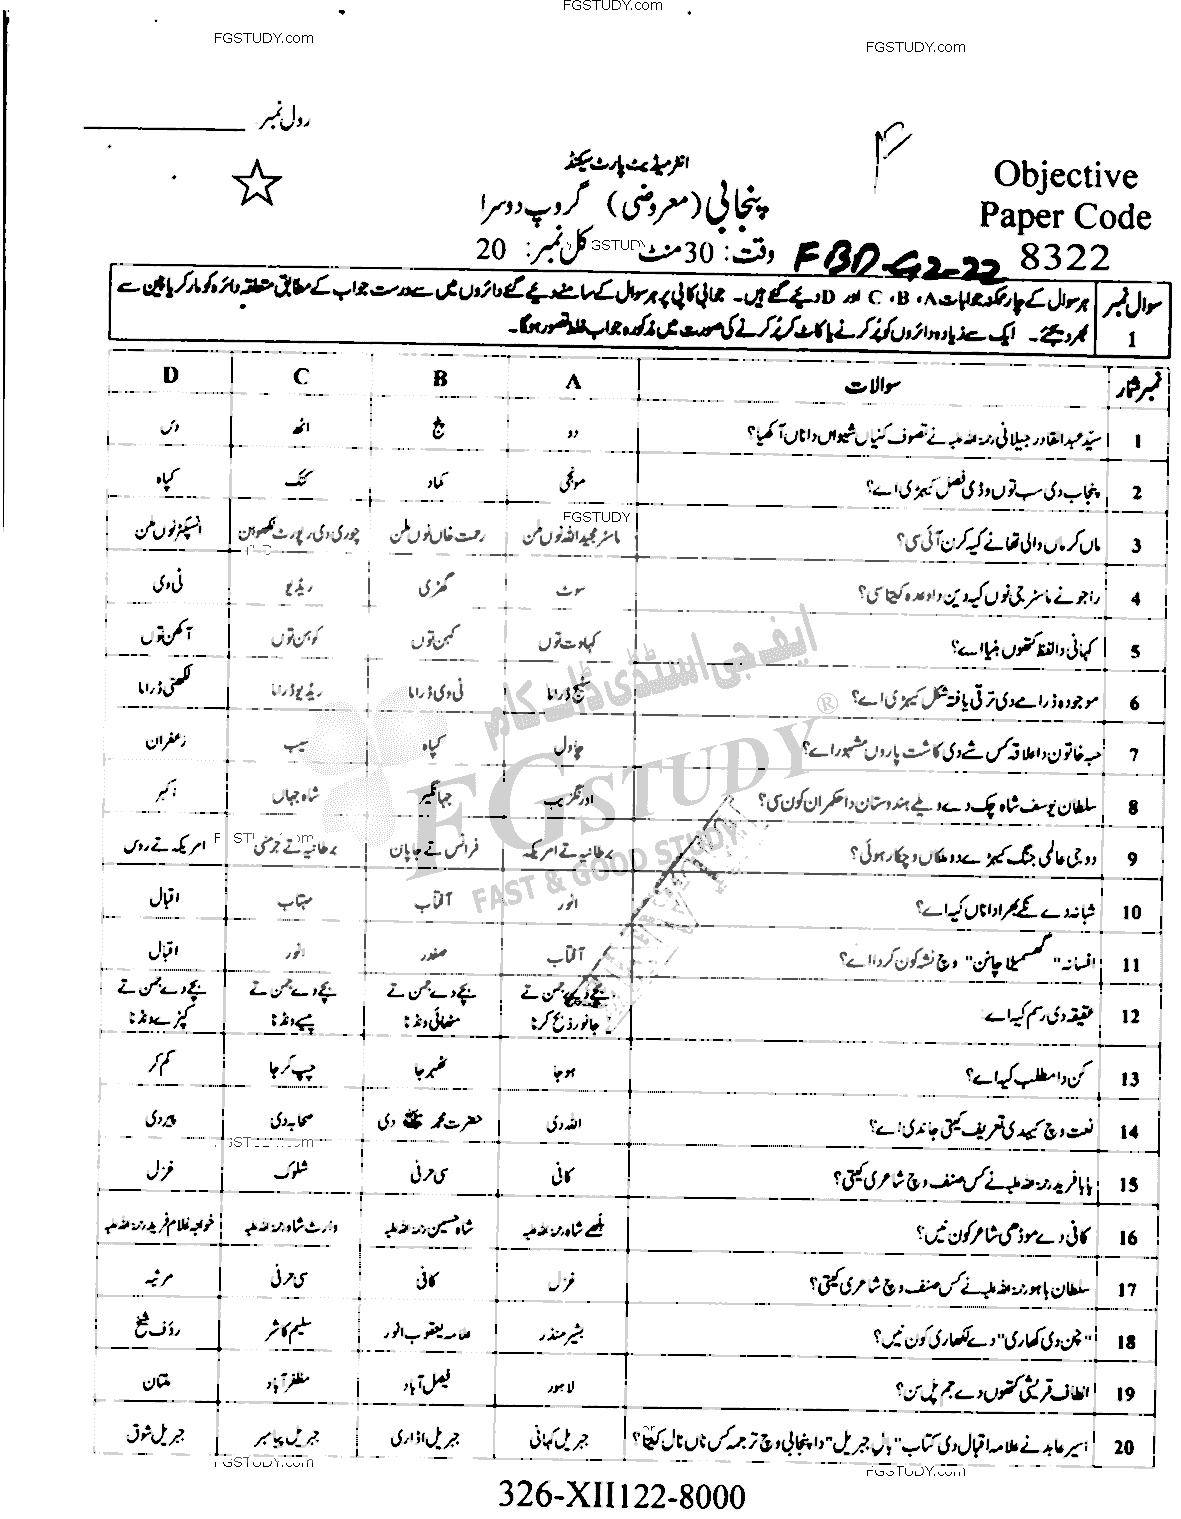 FGSTUDY.com
FGSTUDY.com
FGSTUDY.com
رول نمبر
انٹرمیڈیٹ پارٹ سیکنڈ
Objective
پنجابی (معروضی) گروپ دوسرا
Paper Code
وقت: 30 منٹ کل نمبر: 20
FBD-G2-22
8322
سوال نمبر 1
ہر سوال کے چار ممکنہ جوابات A، B، C اور D دیئے گئے ہیں۔ جوابی کاپی پر ہر سوال کے سامنے دیئے گئے دائروں میں سے درست جواب کے مطابق متعلقہ دائرہ کو مارکر یا پین سے
بھر دیجئے۔ ایک سے زیادہ دائروں کو پُر کرنے یا کاٹ کر پُر کرنے کی صورت میں مذکورہ جواب غلط تصور ہوگا۔
نمبر شمار سوالات A B C D
1 سیّد عبدالقادر جیلانی رحمۃ اللہ علیہ نے تصوف کنیاں شیواں دا ناں آکھیا؟ دو پنج اٹھ دس
2 پنجاب دی سب توں وڈی فصل کیہڑی اے؟ مونجی کماد کنک کپاہ
3 ماں کرماں والی تھانے کیہ کرن آئی سی؟ ماسٹر مجید اللہ نوں ملن رحمت خاں نوں ملن چوری دی رپورٹ لکھوہن انسپکٹر نوں ملن
4 راجو نے ماسٹر جی نوں کیہ دین دا وعدہ کیتا سی؟ سوٹ گھڑی ریڈیو ٹی وی
5 کہانی دا لفظ کتھوں بنیا اے؟ کہاوت توں کہن توں کوہن توں آکھن توں
6 موجودہ ڈرامے دی ترقی یافتہ شکل کیہڑی اے؟ سٹیج ڈراما ٹی وی ڈراما ریڈیو ڈراما لکھتی ڈراما
7 حبہ خاتون دا علاقہ کس شے دی کاشت پاروں مشہور اے؟ چاول کپاہ سیب زعفران
8 سلطان یوسف شاہ چک دے ویلے ہندوستان دا حکمران کون سی؟ اورنگزیب جہانگیر شاہ جہاں اکبر
9 دوجی عالمی جنگ کیہڑے دو ملکاں وچکار ہوئی؟ برطانیہ تے امریکہ فرانس تے جاپان برطانیہ تے جرمنی امریکہ تے روس
10 شبانہ دے نکے بھرا دا ناں کیہ اے؟ انور آفتاب مہتاب اقبال
11 افسانہ "گھسمیلا چانن" وچ نشہ کون کردا اے؟ آفتاب صفدر انور اقبال
12 عقیقہ دی رسم کیہ اے؟ بچے دے جمن تے جانور ذبح کرنا بچے دے جمن تے مٹھائی ونڈنا بچے دے جمن تے پیسے ونڈنا بچے دے جمن تے کپڑے ونڈنا
13 کن دا مطلب کیہ اے؟ ہو جا ٹھہر جا چپ کر جا کم کر
14 نعت وچ کیہدی تعریف کیتی جاندی اے؟ اللہ دی حضرت محمد ﷺ دی صحابہ دی پیر دی
15 بابا فرید رحمۃ اللہ علیہ نے کس صنف وچ شاعری کیتی؟ کافی سی حرفی شلوک غزل
16 کافی دے موڈھی شاعر کون نیں؟ بلھے شاہ رحمۃ اللہ علیہ شاہ حسین رحمۃ اللہ علیہ وارث شاہ رحمۃ اللہ علیہ خواجہ غلام فرید رحمۃ اللہ علیہ
17 سلطان باہو رحمۃ اللہ علیہ نے کس صنف وچ شاعری کیتی؟ غزل کافی سی حرفی مرثیہ
18 "چن دی کھاری" دے لکھاری کون نیں؟ بشیر منذر علامہ یعقوب انور سلیم کاشر رؤف شیخ
19 الطاف قریشی کتھوں دے جم پل سن؟ لاہور فیصل آباد مظفر آباد ملتان
20 اسیر عابد نے علامہ اقبال دی کتاب "بال جبریل" دا پنجابی وچ ترجمہ کس ناں نال کیتا؟ جبریل کہانی جبریل اڈاری جبریل پیامبر جبریل شوق
ایف جی اسٹڈی ڈاٹ کام
FGSTUDY ®
FAST & GOOD STUDY
FGSTUDY.com
FGSTUDY.com
326-XII122-8000